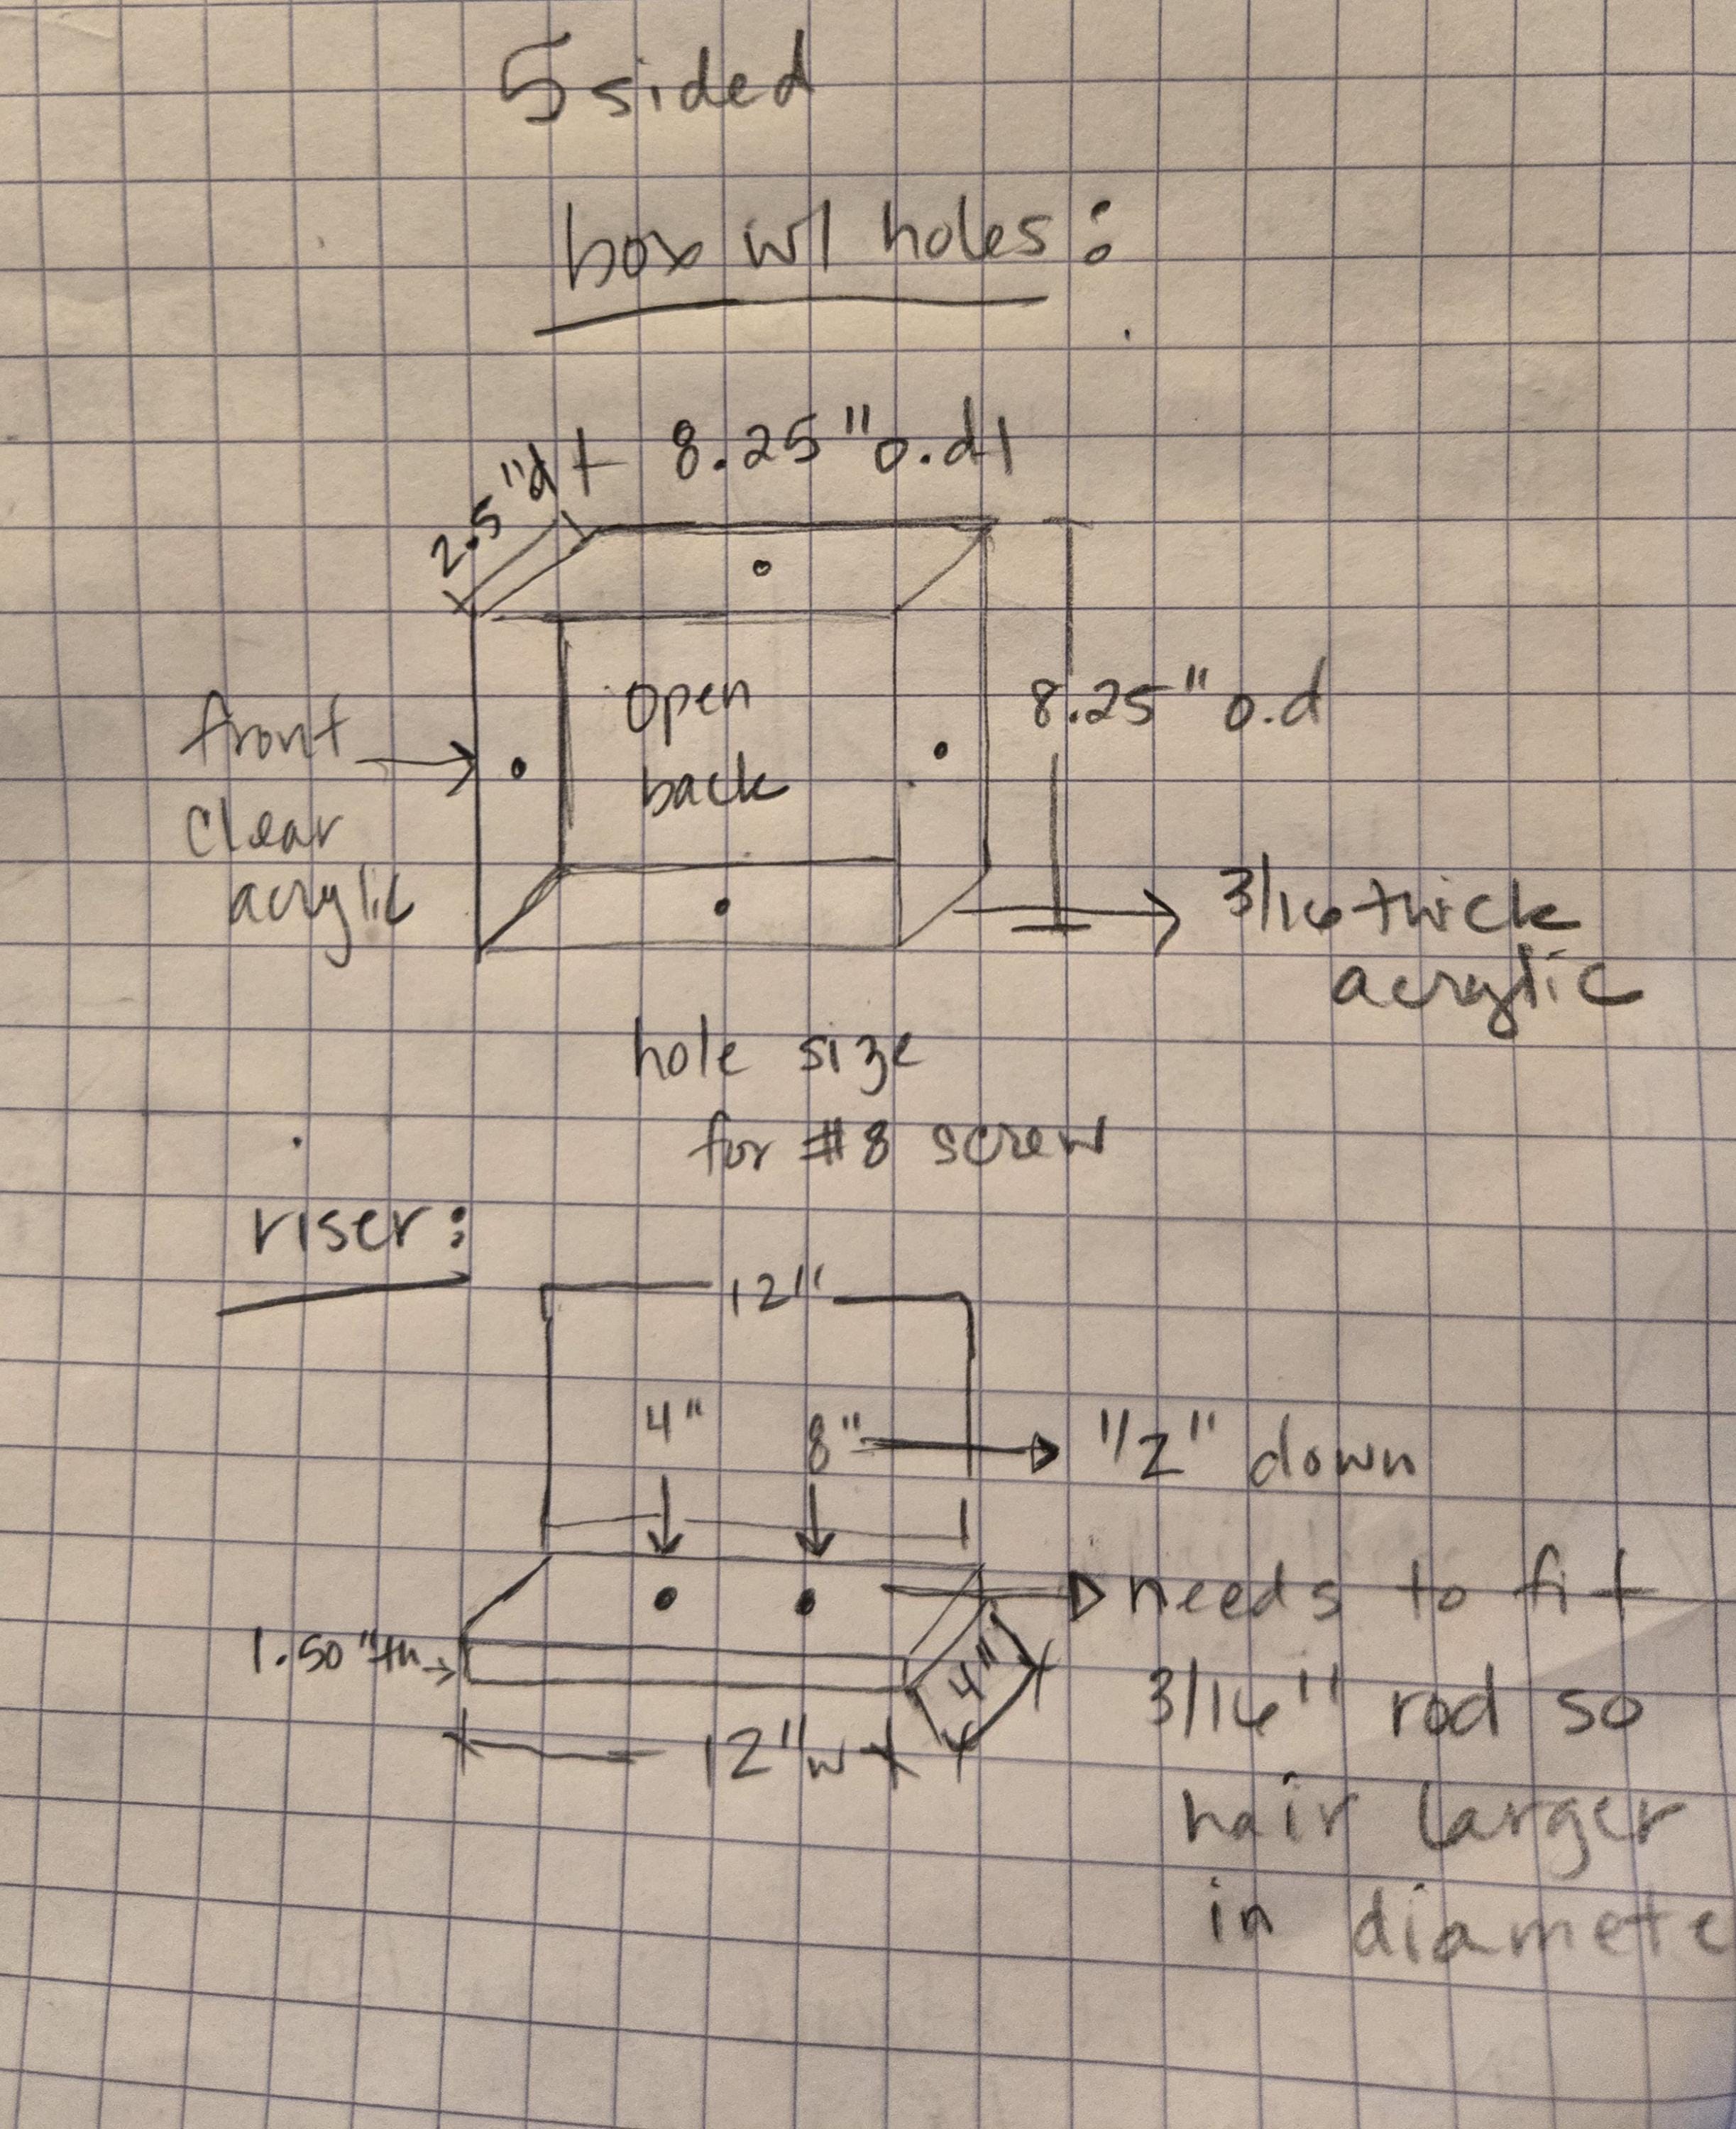 5 sided
box w/ holes:
2.5"d
8.25" o.d
open
back
8.25" o.d
front
clear
acrylic
3/16 thick
acrylic
hole size
for #8 screw
riser:
12"
4"
8"
1/2" down
needs to fit
3/16" rod so
hair larger
in diamete
1.50"th
4"
12"w